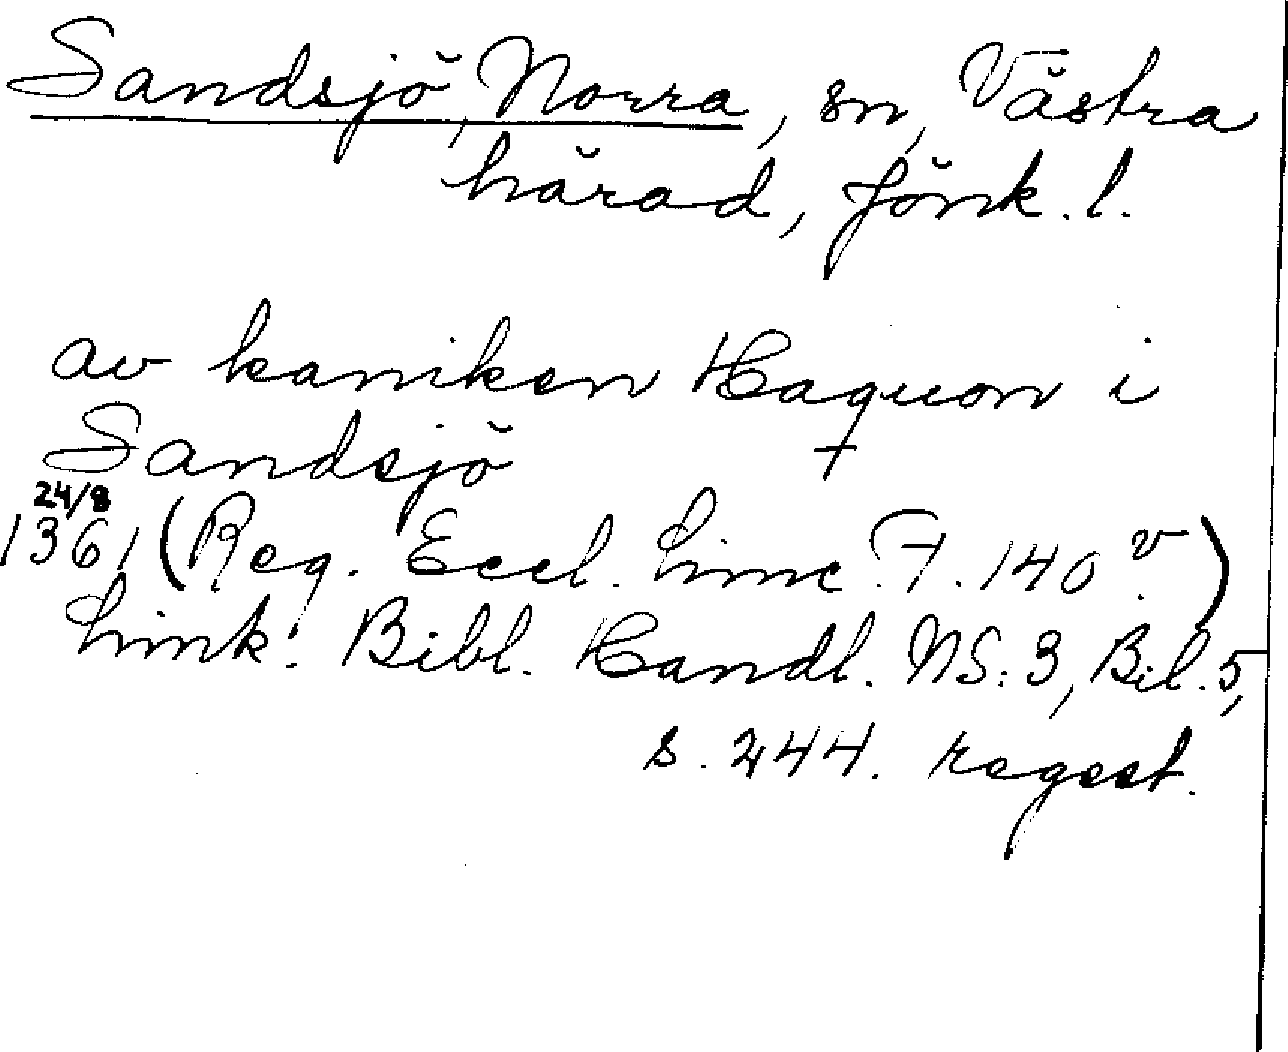 Sandsjö, Norra, sn, Västra
härad, Jönk. l.
av kaniken Haquon i
Sandsjö
24/8
1361 (Reg. Eccl. Linc. F. 140 v.)
Link. Bibl. Handl. NS: 3, Bil. 5,
s. 244. regest.